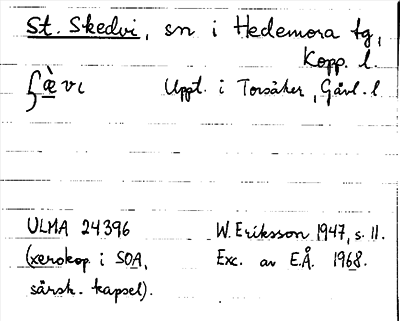 St. Skedvi, sn i Hedemora tg,
Kopp. l.
Uppt. i Torsåker, Gävl. l
ULMA 24396
W. Eriksson 1947, s. 11.
(xerokop. i SOA,
Exc. av E.Å. 1968.
särsk. kapsel).